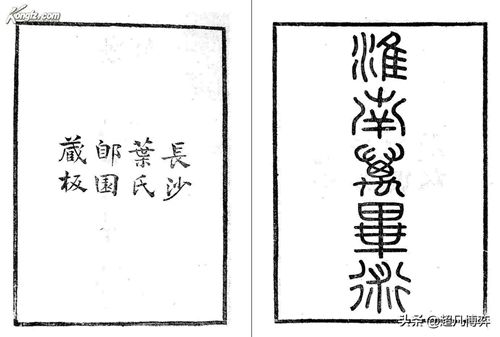 Kongfz.com
長沙
葉氏
郋園
藏板
淮南萬畢術
头条@超凡博弈